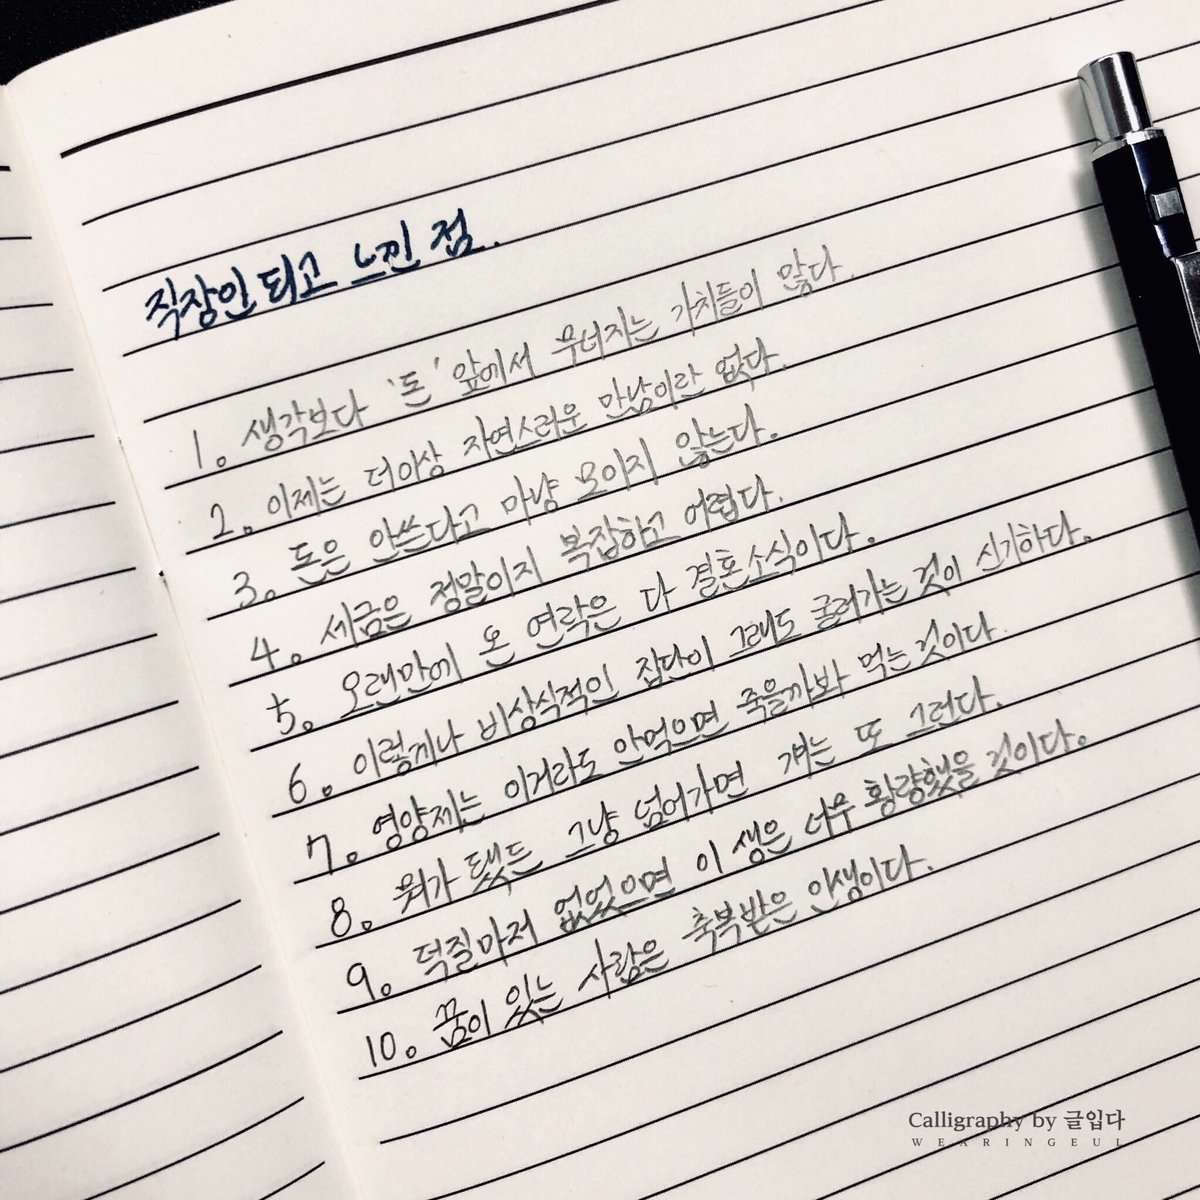 직장인 되고 느낀 점.
1. 생각보다 '돈' 앞에서 무너지는 가치들이 많다.
2. 이제는 더이상 자연스러운 만남이란 없다.
3. 돈은 안쓰다고 마냥 모이지 않는다.
4. 세금은 정말이지 복잡하고 어렵다.
5. 오랜만에 온 연락은 다 결혼소식이다.
6. 이렇게나 비상식적인 집단이 그래도 굴러가는 것이 신기하다.
7. 영양제는 이거라도 안먹으면 죽을까봐 먹는 것이다.
8. 뭐가 됐든 그냥 넘어가면 걔는 또 그런다.
9. 덕질마저 없었으면 이 생은 너무 황량했을 것이다.
10. 꿈이 있는 사람은 축복받은 인생이다.
Calligraphy by 글입다
WEARINGEUL